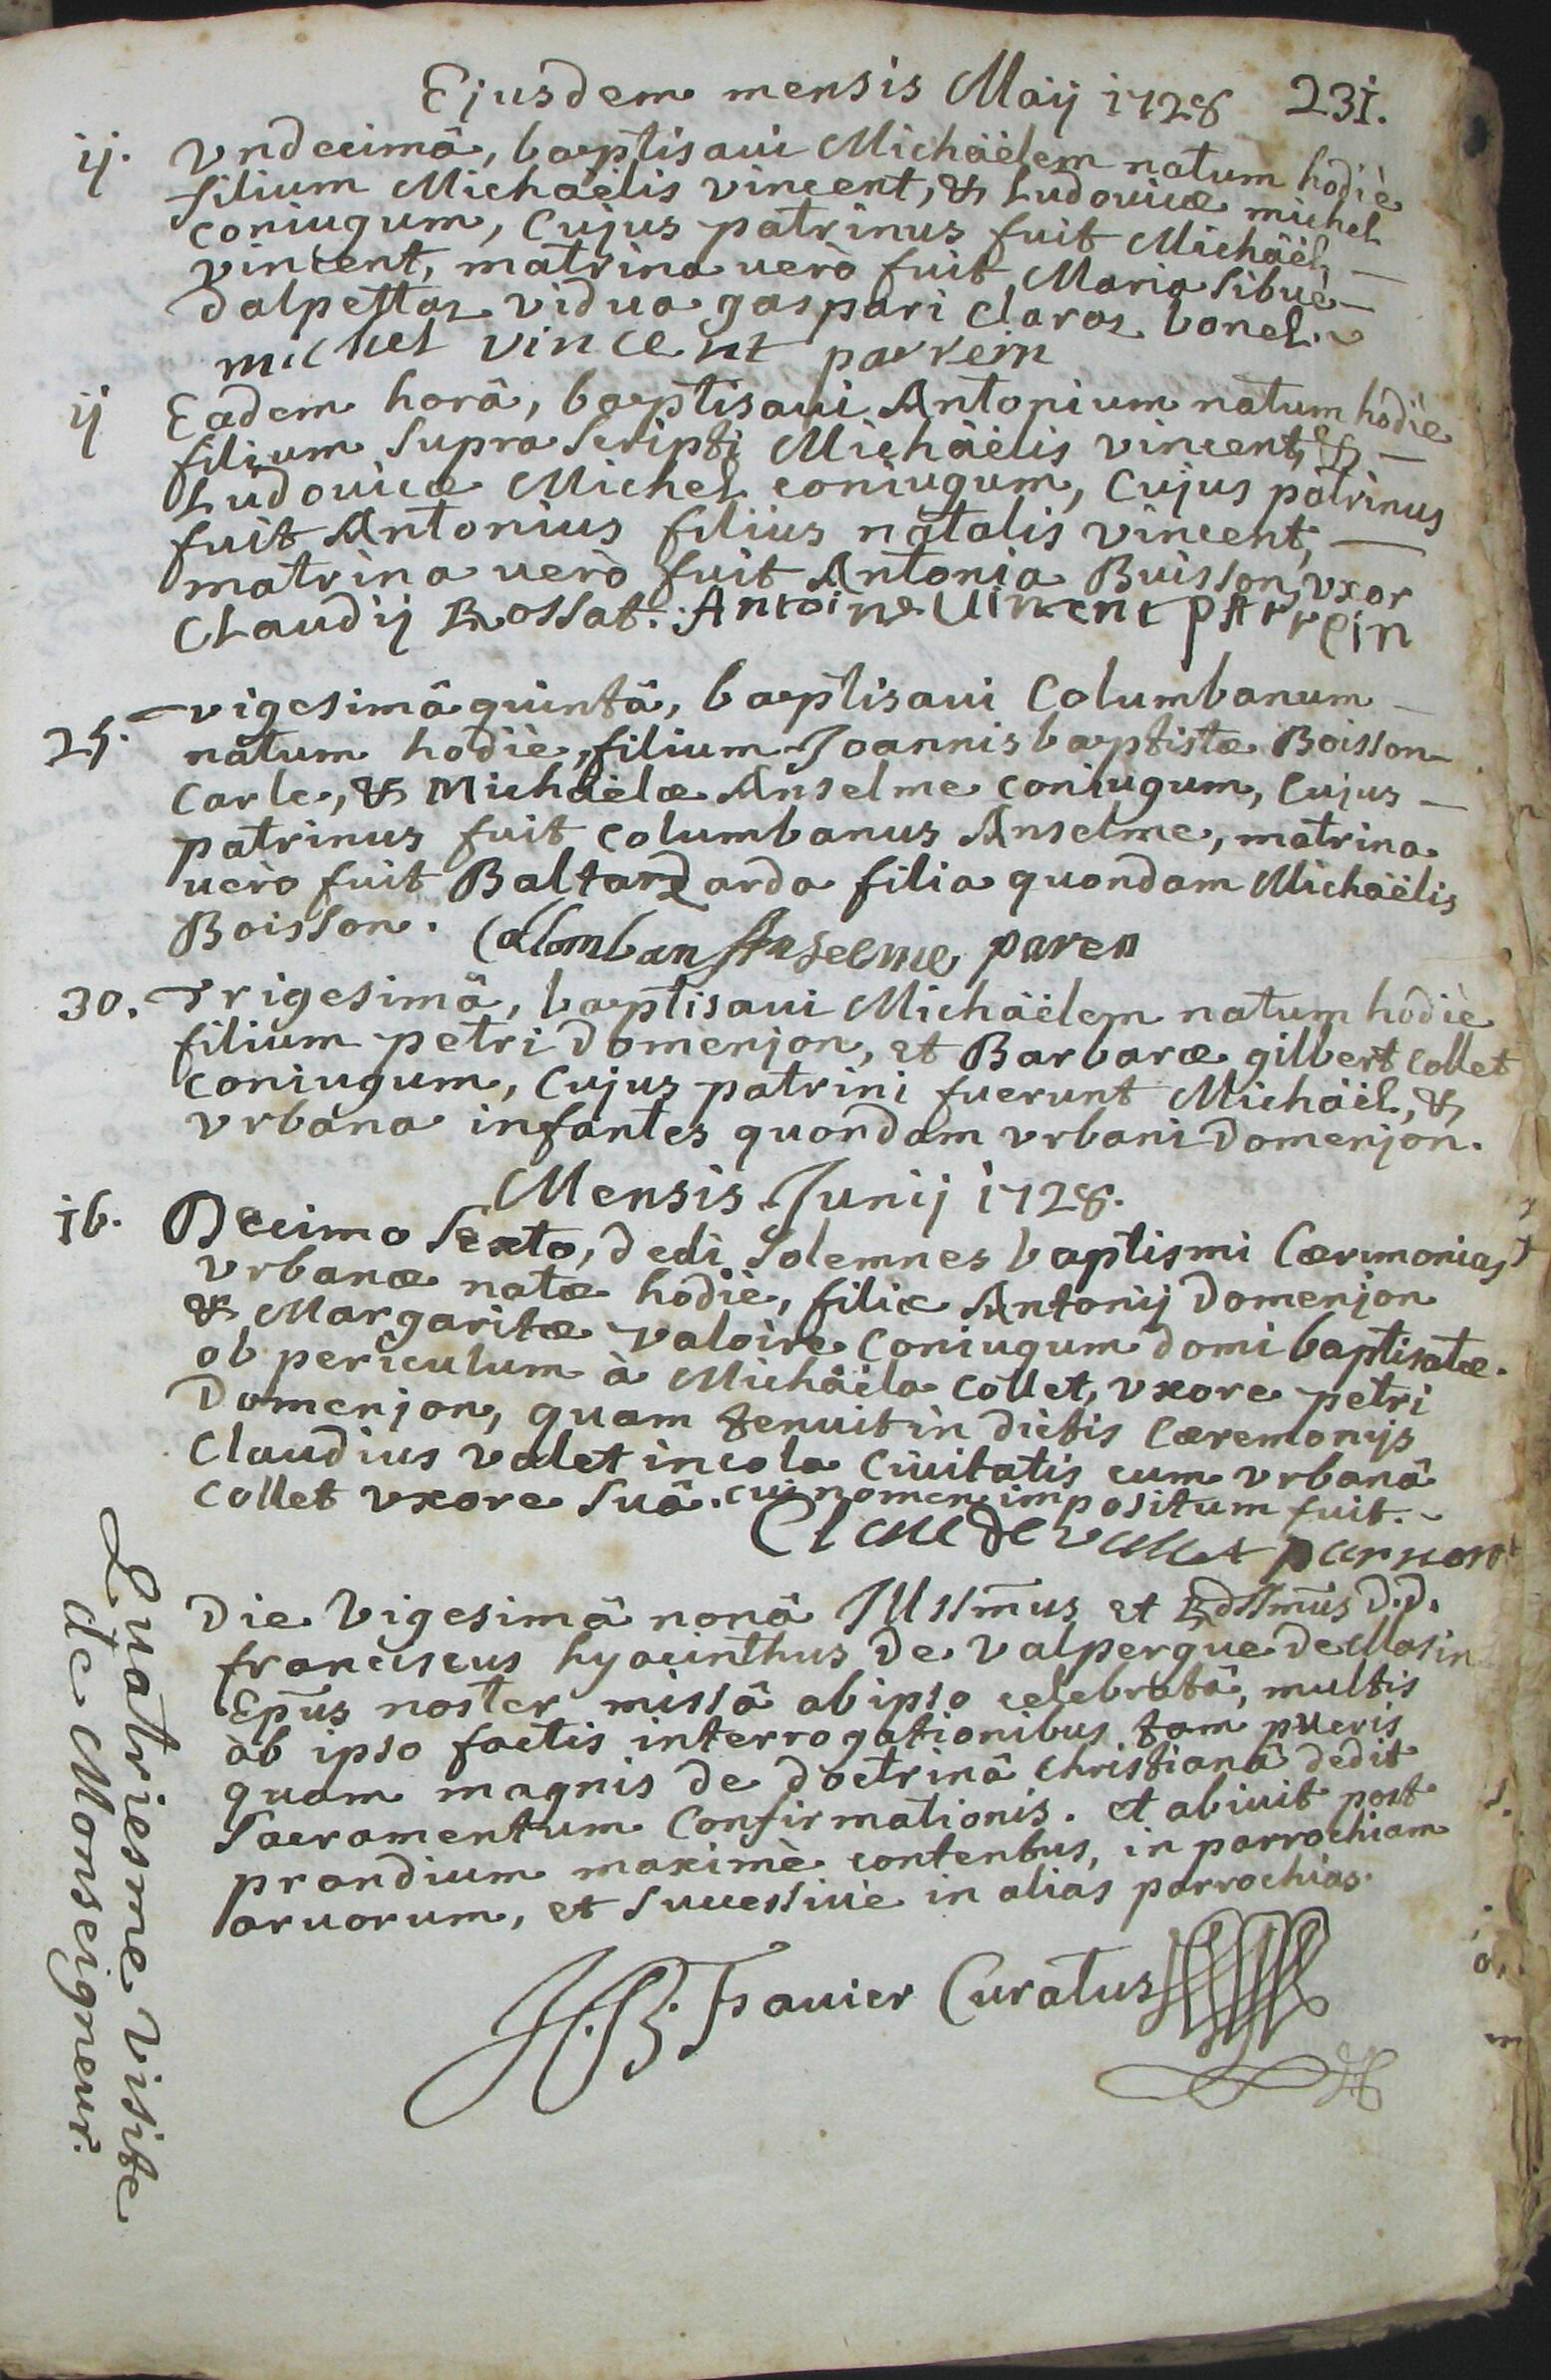 Ejusdem mensis Maÿ 1728 231.
ij. Vndecimâ, baptisaui Michäëlem natum hodiè
filium Michaëlis vincent, & Ludouicæ michel
coniugum, Cujus patrinus fuit Michäël
vincent, matrina uerò fuit Maria Sibuè
dalpettaz vidua gaspari claraz bonel.
michel vincent parrein
ij Eadem horâ, baptisaui Antonium natum hodie
filium supra scripti Michäëlis vincent, &
Ludouicæ Michel coniugum, Cujus patrinus
fuit Antonius filius natalis vincent,
matrina uerò fuit Antonia Buisson, vxor
Claudij Rossat. Antoine Uincent parrein
25. vigesimâ quintâ, baptisaui Columbanum
natum hodiè, filium Joannis baptistæ Boisson
Carle, & Michäëlæ Anselme coniugum, Cujus
patrinus fuit columbanus Anselme, matrina
uerò fuit Baltazarda filia quondam Michäëlis
Boisson. Colomban Anselme paren
30. Trigesimâ, baptisaui Michäëlem natum hodiè
filium petri Domenjon, et Barbaræ gilbert collet
coniugum, Cujus patrini fuerunt Michäël, &
vrbana infantes quondam vrbani Domenjon.
Mensis Junij 1728.
16. Decimo Sexto, dedi Solemnes baptismi Cærimonias
vrbanæ natæ hodiè, filiæ Antonij Domenjon
& Margaritæ valoire coniugum domi baptisatæ
ob periculum à Michäëla Collet, vxore petri
Domenjon, quam tenuit in dictis Cæremonijs
Claudius valet incola Ciuitatis cum vrbanâ
Collet vxore Suâ. cui nomen impositum fuit.
Claude vallet
Die Vigesimâ nonâ Illssm̄us et Rdssm̄us D.D.
franciscus hyacinthus De Valpergue De Masin
Ep̄us noster missâ ab ipso celebratâ, multis
ab ipso factis interrogationibus tam pueris
quam magnis de doctrinâ christianâ dedit
Sacramentum Confirmationis. et abiuit post
prandium maximè contentus, in parrochiam
aruorum, et Successiuè in alias parrochias.
J.B. Favier Curatus
Quatriesme Visite
de Monseigneur.